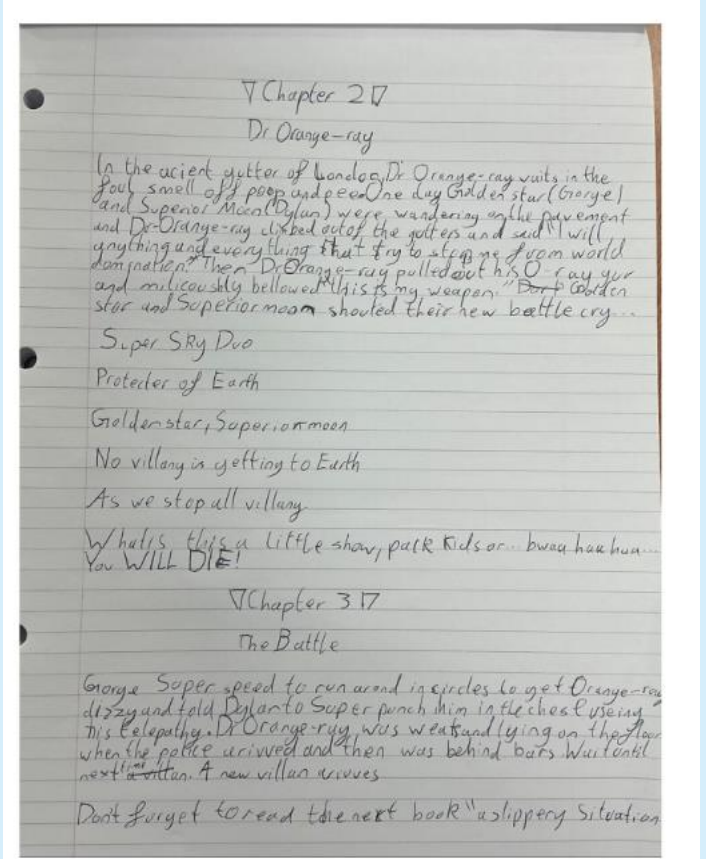 Chapter 2
Dr Orange-ray
In the acient gutter of London, Dr Orange-ray waits in the
foul smell off poop and pee. One day Golden star (Gorge)
and Superior Moon (Dylan) were wandering on the pavement
and Dr-Orange-ray climbed out of the gutters and said "I will
anything and everything that try to stop me from world
domination." Then Dr Orange-ray pulled out his O-ray gun
and milicously bellowed "this is my weapon." Golden
star and Superior moon shouted their new battle cry...
Super Sky Duo
Protecter of Earth
Golden star, Superior moon
No villany is getting to Earth
As we stop all villany
What is this a little show, pack kids or... bwaa haa hua...
You WILL DIE!
Chapter 3
The Battle
Gorge Super speed to run arond in circles to get Orange-ray
dizzy and told Dylan to Super punch him in the chest useing
his telepathy. Dr Orange-ray was weak and lying on the floor
when the police arivved and then was behind bars. Wait until
next time. A new villan arivves
Don't furget to read the next book "a slippery Situation